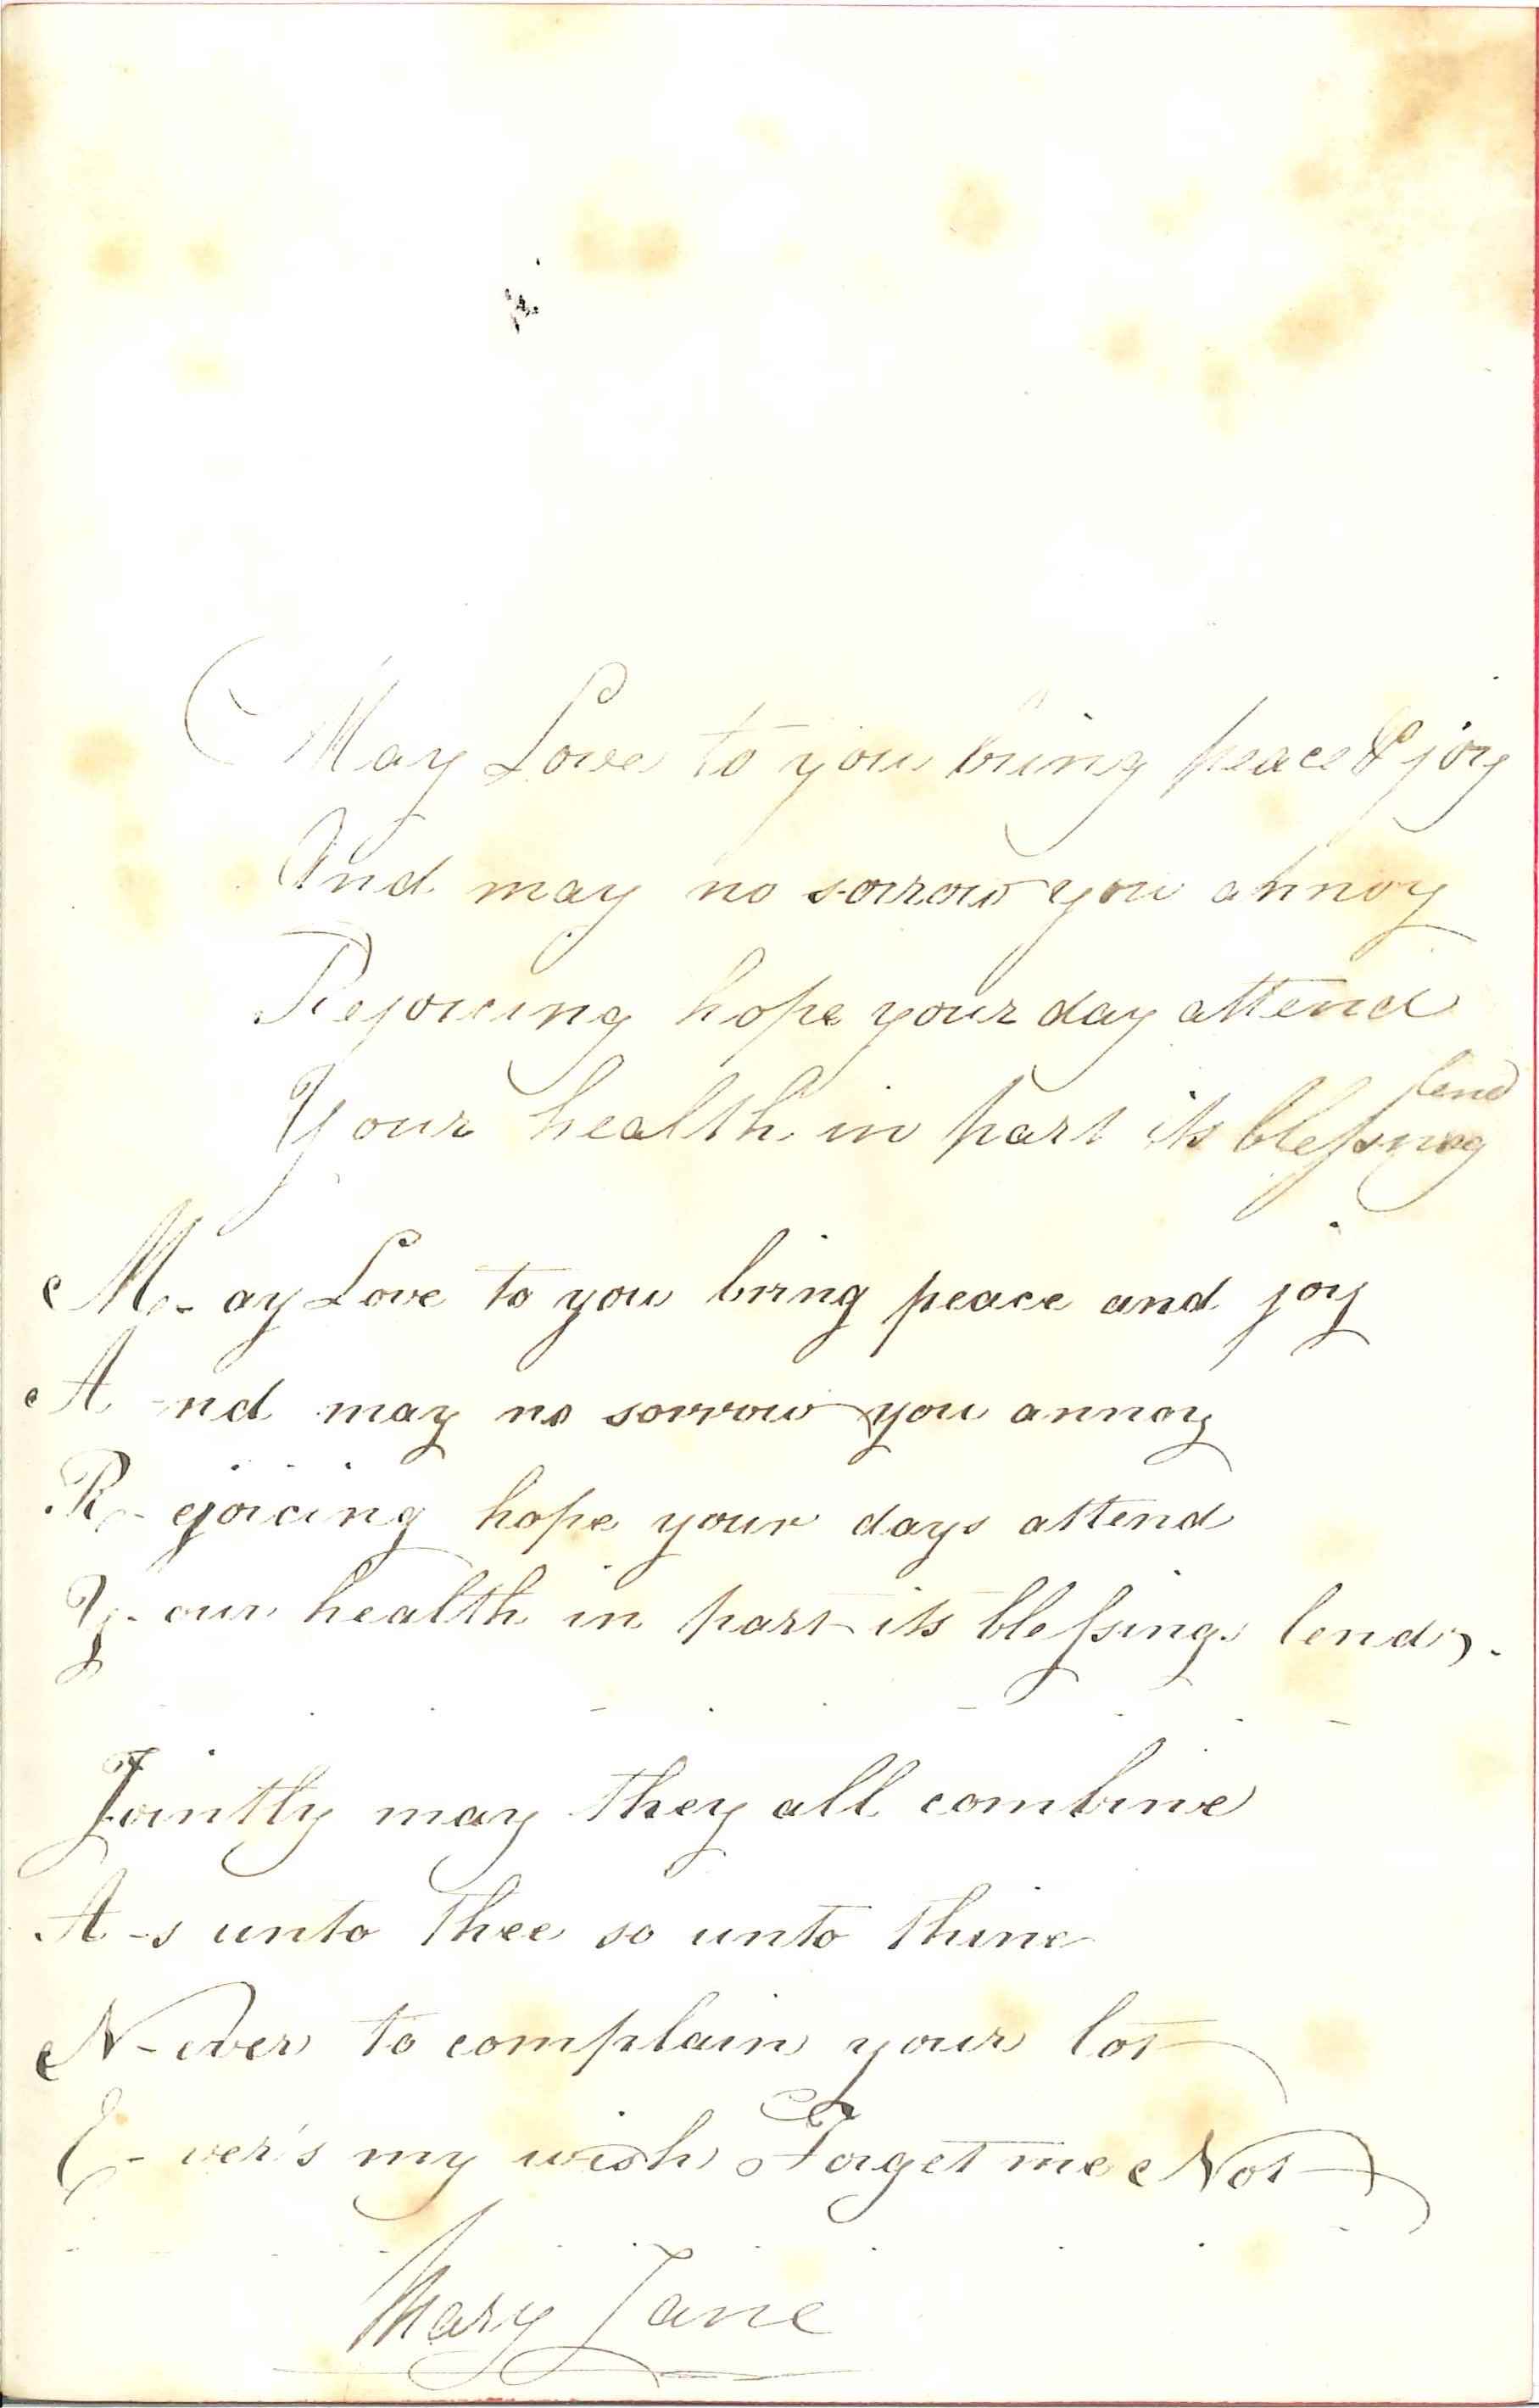 May Love to you bring peace & joy
And may no sorrow you annoy
Rejoicing hope your day attend
Your health in part its blessing lend
M-ay Love to you bring peace and joy
A-nd may no sorrow you annoy
R-ejoicing hope your days attend
Y-our health in part its blessings lend.
Jointly may they all combine
A-s unto thee so unto thine
N-ever to complain your lot
E-ver's my wish Forget me Not
Mary Jane